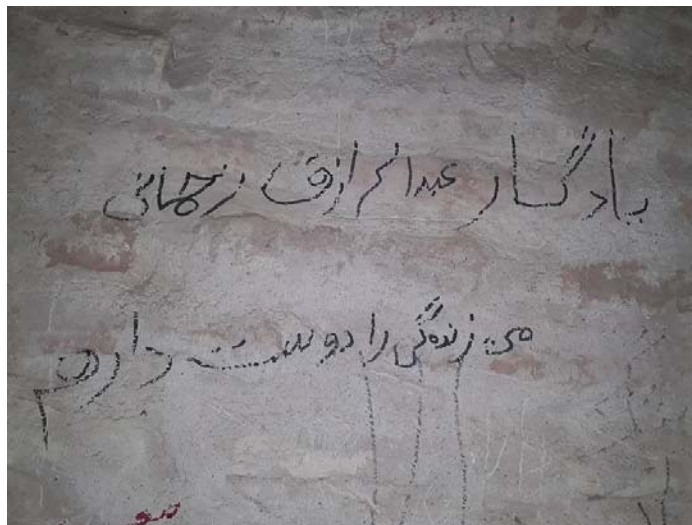 یادگار عبدالرازق رحمانی
من زندگی را دوست دارم